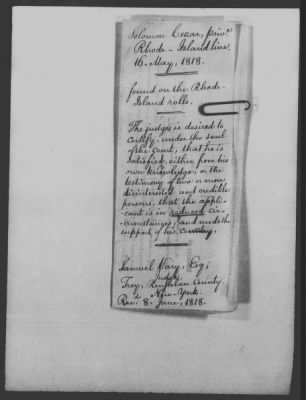 Solomon Cezar, priv.
Rhode-Island line.
16. May, 1818.
found on the Rhode-
Island rolls.
The judge is desired to
certify, under the seal
of the court, that he is
satisfied, either from his
own knowledge, or the
testimony of two or more
disinterested and credible
persons, that the appli-
cant is in reduced cir-
cumstances, and needs the
support of his country.
Samuel Esq;
judge,
Troy, County,
New-York.
Rec.d 8. June, 1818.